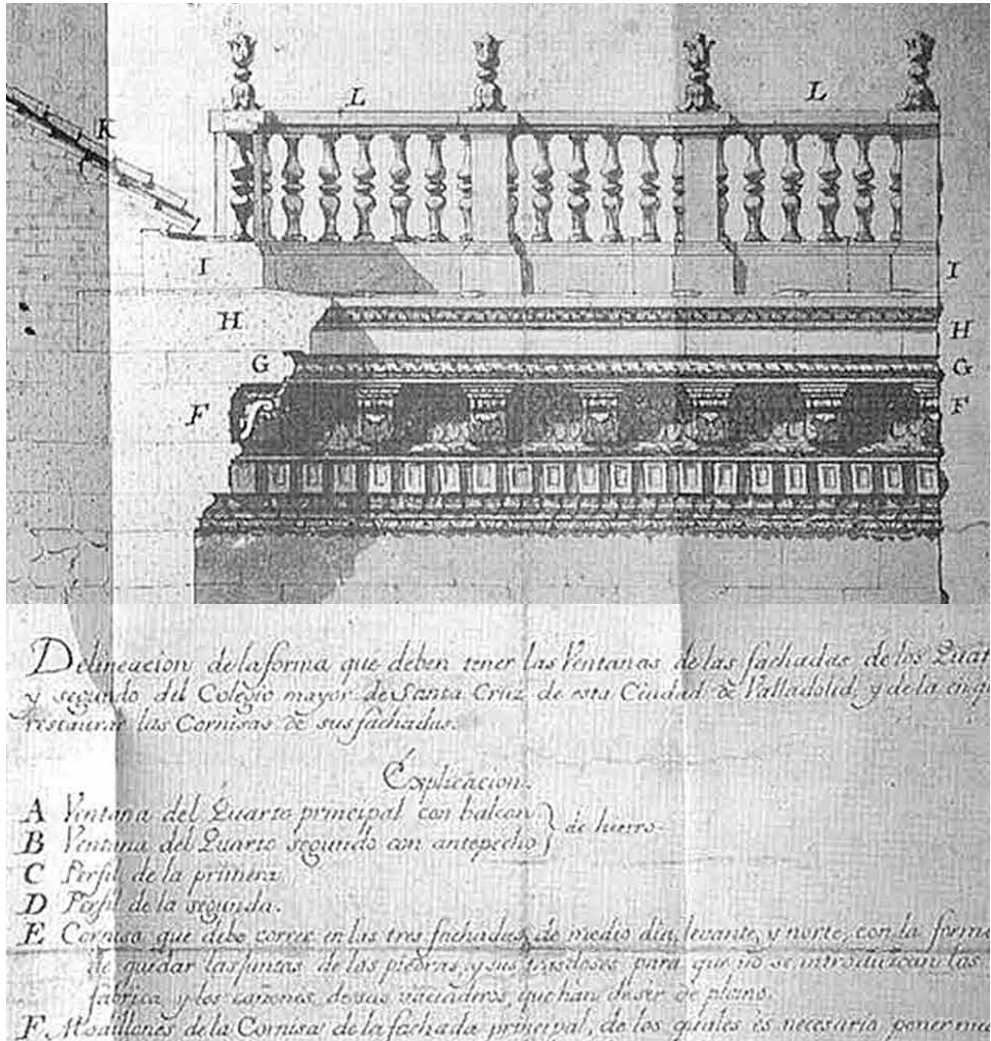 L L
K
I I
H H
G G
F F
Delineacion de la forma que deben tener las Ventanas de las fachadas de los
y segundo del Colegio mayor de Santa Cruz de esta Ciudad de Valladolid, y de la en
restaurar las Cornisas de sus fachadas.
Explicacion.
A Ventana del Quarto principal con balcon
de hierro.
B Ventana del Quarto segundo con antepecho
C Perfil de la primera
D Perfil de la segunda.
E Cornisa que debe correr en las tres fachadas, de medio dia, levante, y norte, con la
de quidar las juntas de las piedras, y sus trasdoses para que no se introduzcan las
fabrica y los cañones de sus vaciaderos, que han de ser de plomo.
F Modillones de la Cornisa de la fachada principal, de los quales es necesario poner